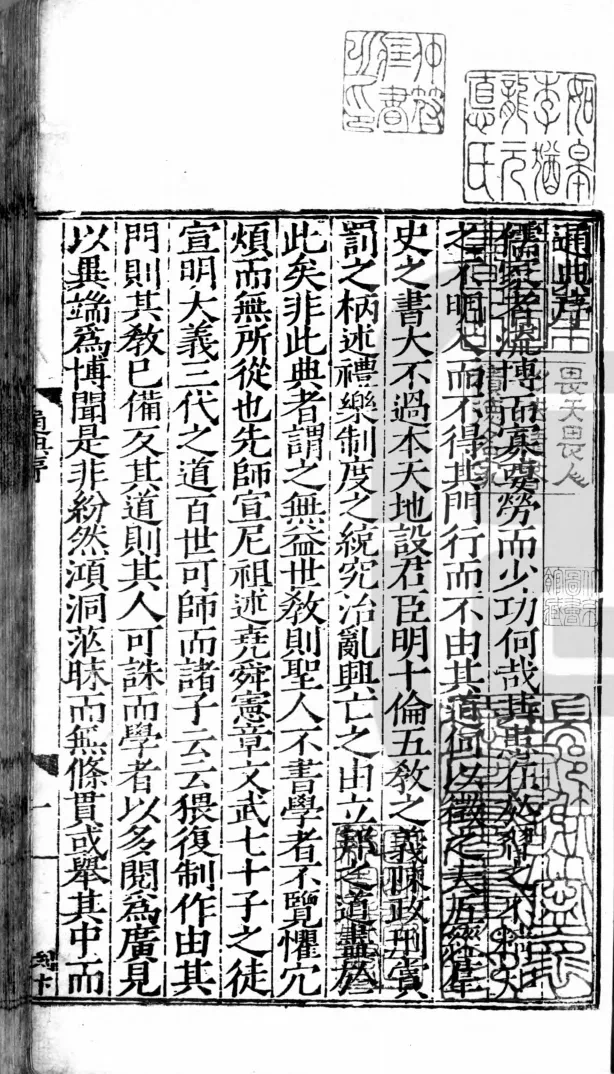 通典序
儒家者流博而寡要勞而少功何哉其患在於習之不精知
之不明入而不得其門行而不由其道何以徵之夫五經羣
史之書大不過本天地設君臣明十倫五教之義陳政刑賞
罰之柄述禮樂制度之統究治亂興亡之由立邦之道盡於
此矣非此典者謂之無益世教則聖人不書學者不覽懼冗
煩而無所從也先師宣尼祖述堯舜憲章文武七十子之徒
宣明大義三代之道百世可師而諸子云云猥復制作由其
門則其教已備反其道則其人可誅而學者以多閱爲廣見
以異端爲博聞是非紛然澒洞茫昧而無條貫或舉其中而
通典序
一
如皋李猶龍元惪氏
畏天畏人